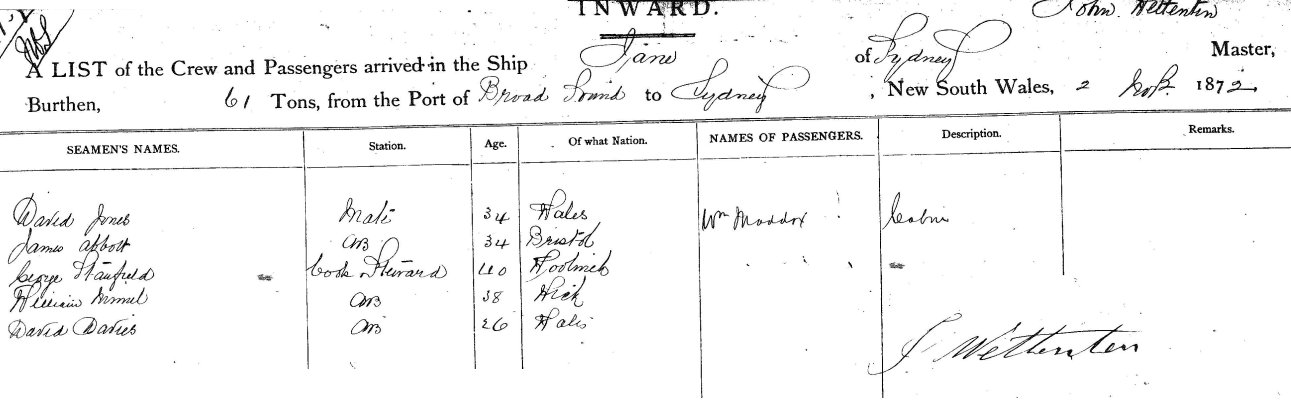 INWARD.
John Wettenten
A LIST of the Crew and Passengers arrived in the Ship Jane of Sydney Master,
Burthen, 61 Tons, from the Port of Broad Sound to Sydney, New South Wales, 2 1872.
SEAMEN'S NAMES. Station. Age. Of what Nation. NAMES OF PASSENGERS. Description. Remarks.
David Jones Mate 34 Wales Wm Maddox Cabin
James Abbott AB 34 Bristol
George Stanfield Cook & Steward 40 Woolwich
William AB 38 Wick
David Davies AB 26 Wales
J Wettenten